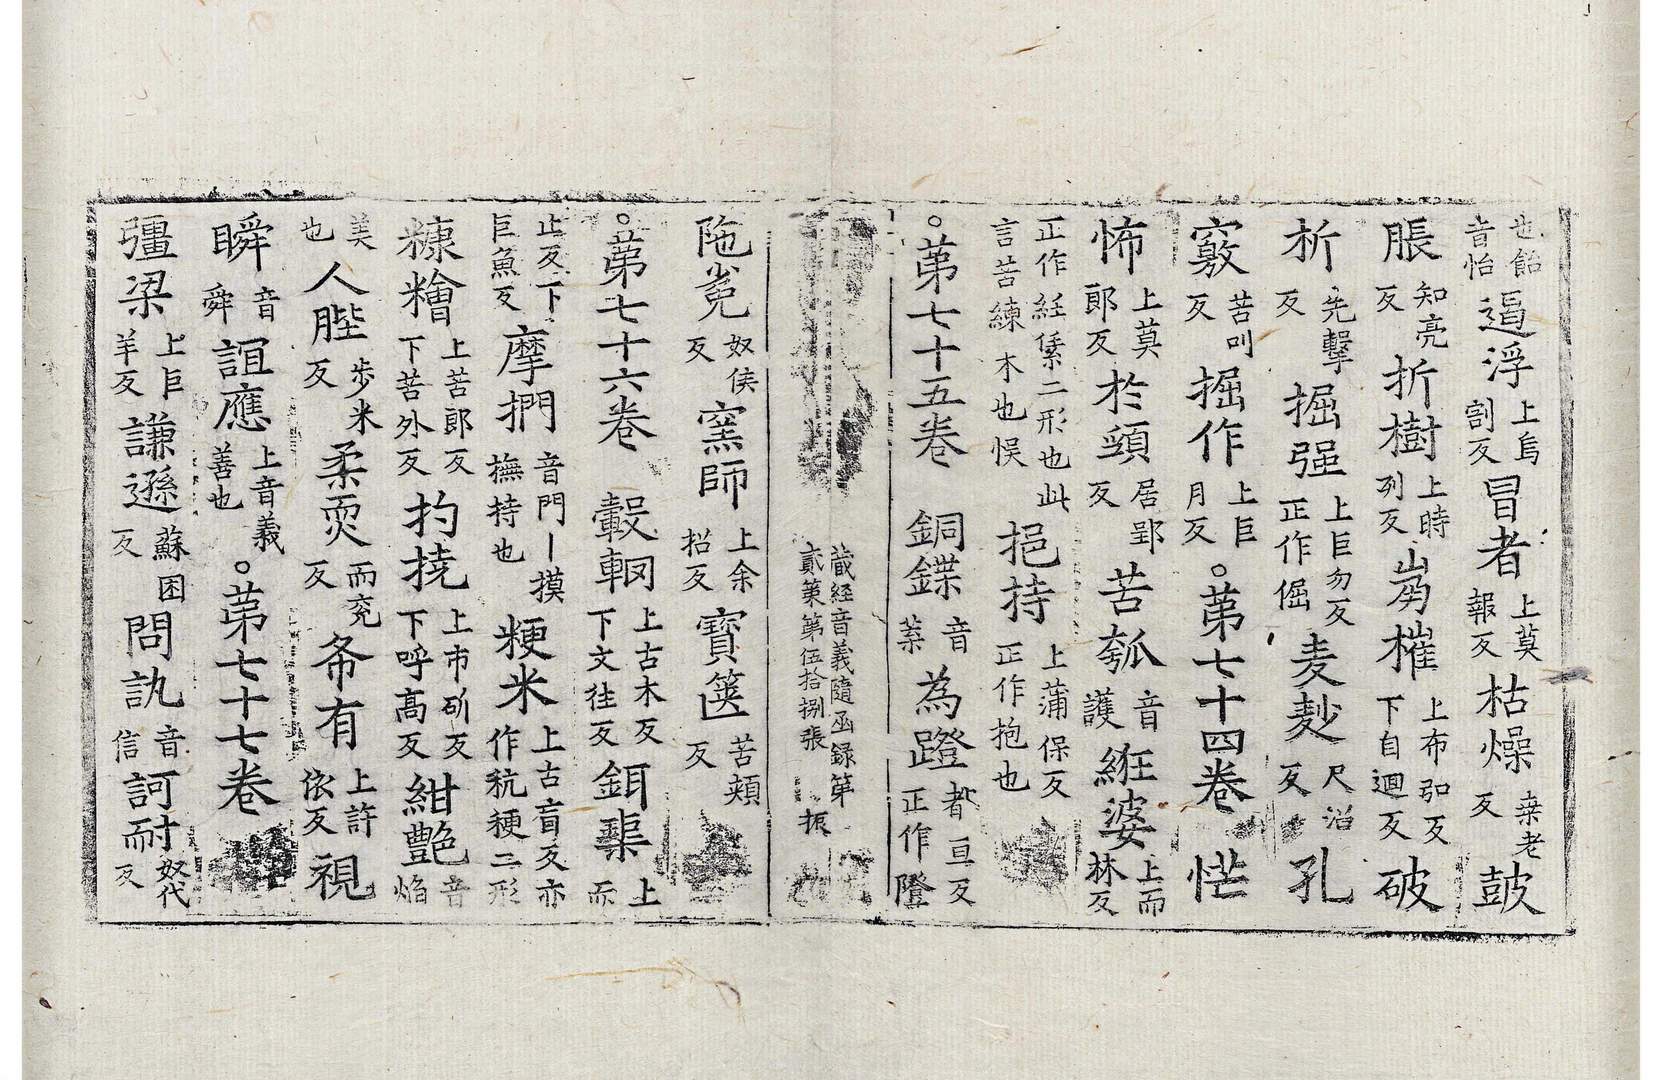 也飴音怡遏浮上烏割反冒者上莫報反枯燥桒老反皷
脹知亮反折樹上時列反崩摧上布弘反下自迴反破
析先擊反掘强上巨勿反正作倔麦麨尺沼反孔
竅苦叫反掘作上巨月反。苐七十四卷恾
怖上莫郎反於頸居郢反苦瓠音護絍婆上而林反
正作經𦂳二形也此言苦練木也悮挹持上蒲保反正作抱也
。苐七十五卷銅鍱音葉為蹬都亘反正作隥
藏經音義隨函録第貳第第伍拾捌張 振
陁㝹奴侯反窯師上余招反寶篋苦頰反
。苐七十六卷轂輞上古木反下文往反鉺璖上而
止反下巨魚反摩捫音門丨摸撫持也粳米上古盲反亦作秔稉二形
糠糩上苦郎反下苦外反扚撓上市斫反下呼高反紺艷音焰
美也人䏶步米反柔耎而兖反希有上許依反視
瞬音舜誼應上音義善也。苐七十七卷
彊梁上巨羊反謙遜蘇困反問訊音信訶耐奴代反